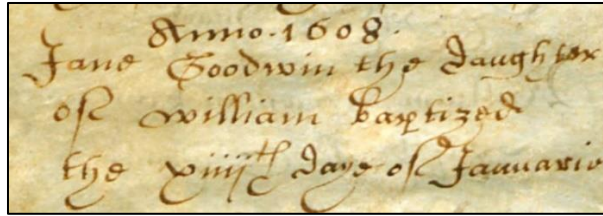 Anno · 1608 ·
Jane Goodwin the daughter
of William baptized
the xiiijth daye of Januarie